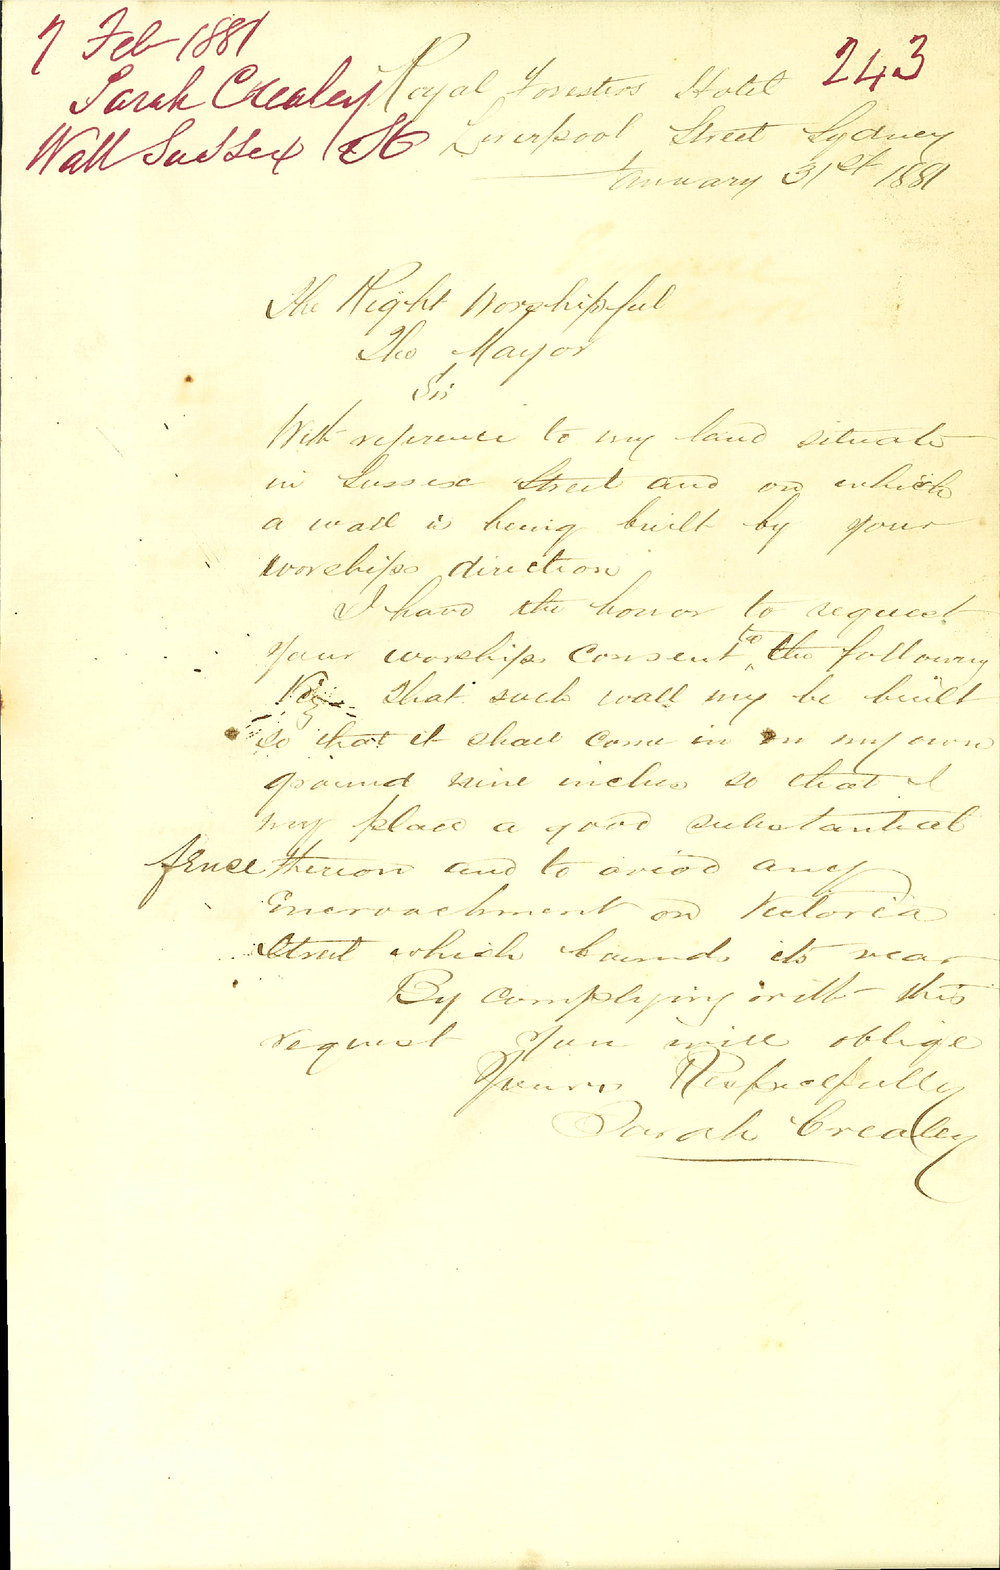 7 Feb 1881
Sarah Crealey
Wall Sussex St
243
Royal Foresters Hotel
Liverpool Street Sydney
January 31st 1881
The Right Worshipful
The Mayor
Sir
With reference to my land situate
in Sussex Street and on which
a wall is being built by your
worships direction
I have the honor to request
your worships consent to the following
Viz. That such wall my be built
so that it shall come in on my own
ground nine inches so that I
my place a good substantial
fence thereon and to aviod any
Encroachment on Victoria
Street which bounds its rear
By complying with this
request you will oblige
Yours Respectfully
Sarah Crealey